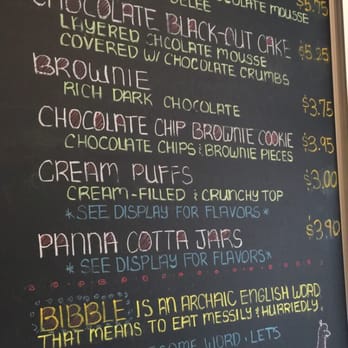 CHOCOLATE MOUSSE
$5.75
CHOCOLATE BLACK-OUT CAKE
LAYERED CHCOLATE MOUSSE $5.25
COVERED W/ CHOCOLATE CRUMBS
BROWNIE
RICH DARK CHOCOLATE $3.75
CHOCOLATE CHIP BROWNIE COOKIE $3.95
CHOCOLATE CHIPS & BROWNIE PIECES
CREAM PUFFS $3.00
CREAM-FILLED & CRUNCHY TOP
*SEE DISPLAY FOR FLAVORS*
PANNA COTTA JARS $3.90
*SEE DISPLAY FOR FLAVORS*
BIBBLE IS AN ARCHAIC ENGLISH WORD
THAT MEANS TO EAT MESSILY & HURRIEDLY.
WORD, LET'S